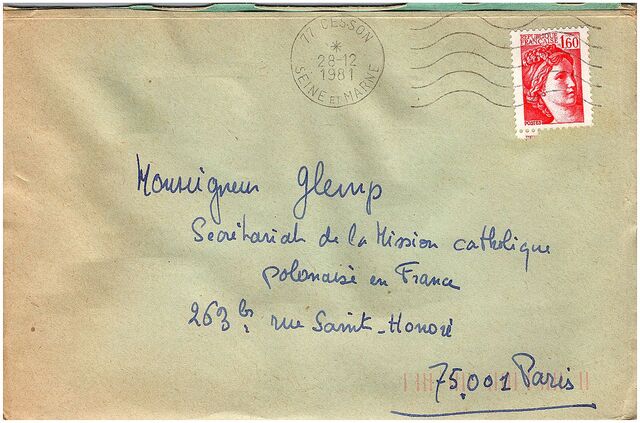 77 CESSON
*
28-12
1981
SEINE ET MARNE
REPUBLIQUE
FRANÇAISE 1,60
POSTES
Monseigneur Glemp
Secrétariat de la Mission catholique
polonaise en France
263 bis rue Saint-Honoré
75.001 Paris